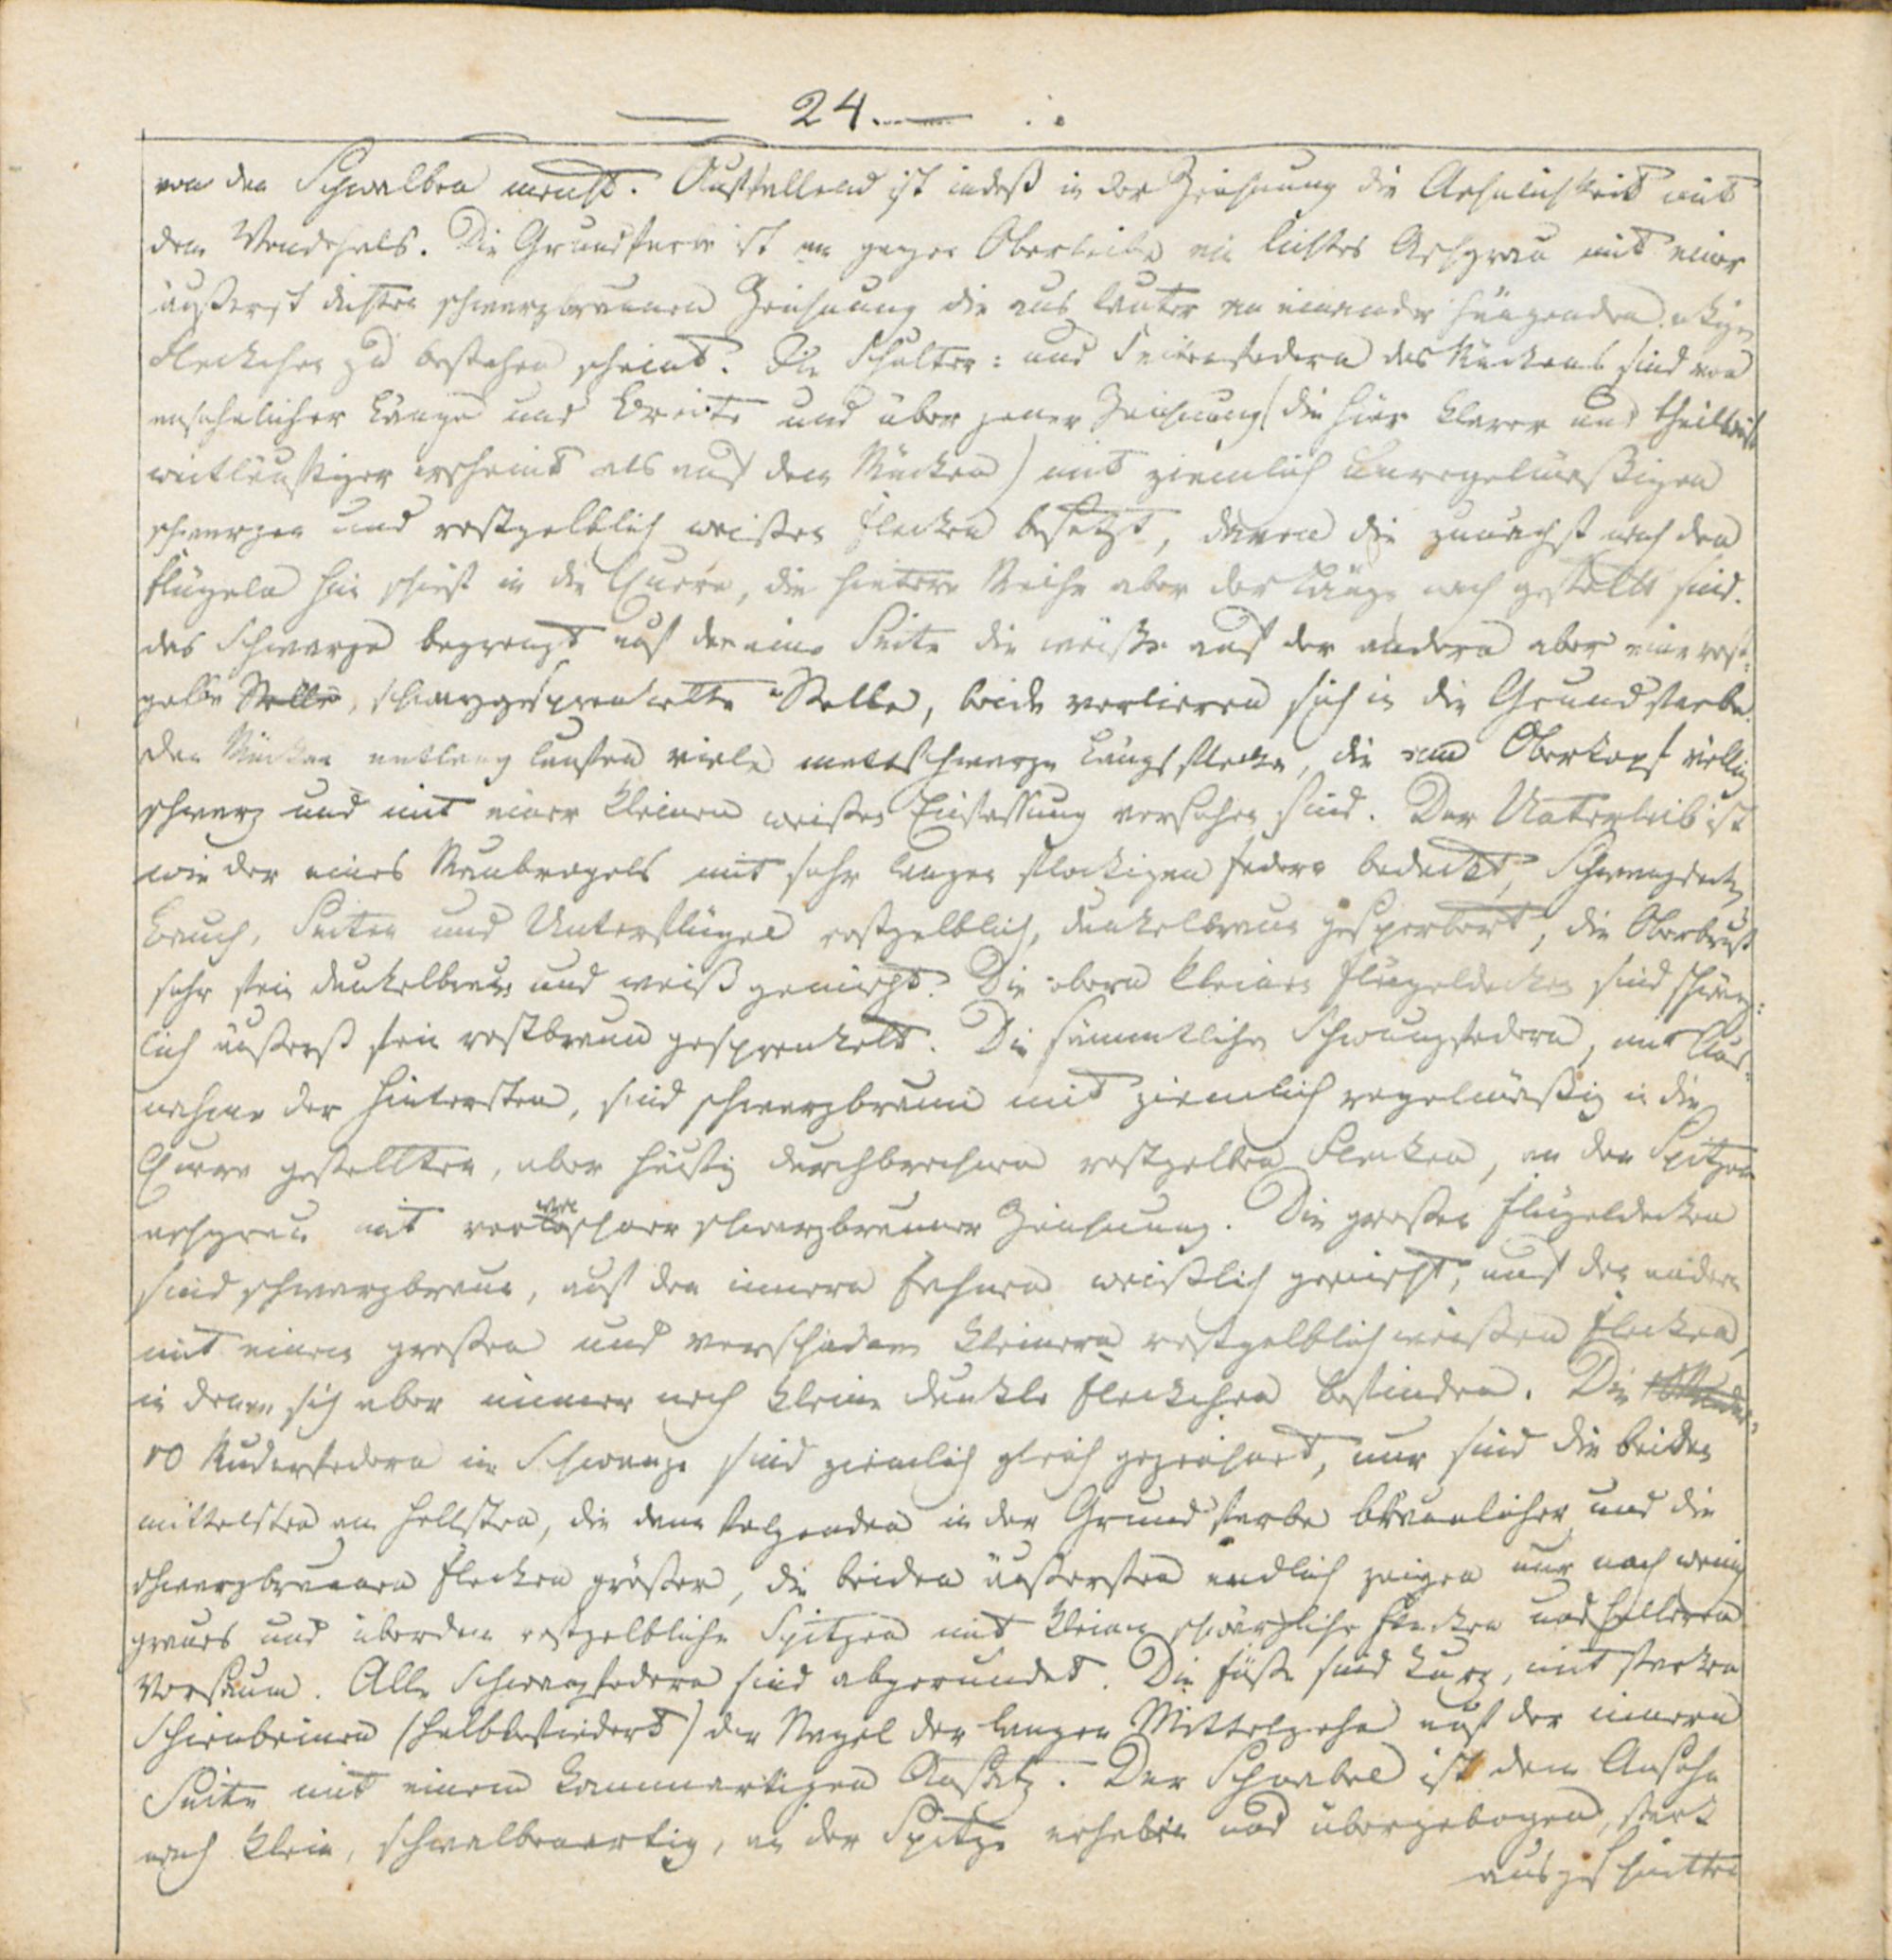 — 24. —
von den Schwalben nennt. Auffallend ist indeß in der Zeichnung die Aehnlichkeit mit
dem Wendehals. Die Grundfarbe ist am ganzen Oberleibe ein lichtes Aschgrau mit einer
äußerst dichten schwarzbraunen Zeichnung die aus lauter an einander hängenden eckigen
Fleckchen zu bestehen scheint. Die Schulter: und Seitenfedern des Rückens sind von
ansehnlicher Länge und Breite und über jener Zeichnung (die hier klarer und theilweise
weitläuftiger erscheint als auf dem Rücken) mit ziemlich unregelmäßigen
schwarzen und rostgelblich weißen Flecken besetzt, davon die zunächst nach den
Flügeln hin schief in die Quere, die hintere Reihe aber der Länge nach gestellt sind.
das Schwarze begrenzt auf der eine Seite die weiße auf der andern aber eine rost-
gelbe Stelle, schwarzgesprenkelte Stelle, beide verlieren sich in die Grundfarbe.
Den Rücken entlang laufen viele mattschwarze Längsflecke, die am Oberkopf völlig
schwarz und mit einer kleinen weißen Einfassung versehen sind. Der Unterleib ist
wie der eines Raubvogels mit sehr langen flockigen Federn bedeckt, Schwanzdecke,
Bauch, Seiten und Unterflügel rostgelblich, dunkelbraun gesperbert, die Oberbrust
sehr fein dunkelbraun und weiß gemischt. Die obern kleinen Flügeldecken sind schwärz-
lich äußerst fein rostbraun gesprenkelt. Die sämmtlichen Schwungfedern, mit Aus-
nahme der hintersten, sind schwarzbraun mit ziemlich regelmäßig in die
Quere gestellten, aber häufig durchbrochenen rostgelben Flecken, an den Spitzen
aschgrau mit verwaschener schwarzbrauner Zeichnung. Die großen Flügeldecken
sind schwarzbraun, auf den innern Fahnen weißlich gemischt, auf den andern
mit einem großen und verschiednen kleinern rostgelblichweißen Flecken,
in denen sich aber immer noch kleine dunkle Fleckchen befinden. Die
10 Ruderfedern im Schwanze sind ziemlich gleich gezeichnet, nur sind die beiden
mittelsten am hellsten, die dann folgenden in der Grundfarbe bräunlicher und die
schwarzbraunen Flecken größer, die beiden äußersten endlich zeigen nur noch wenig
graues und überdem rostgelbliche Spitzen mit kleinen schwärzliche Flecken und hellerem
Vorsaum. Alle Schwanzfedern sind abgerundet. Die Füße sind kurz, mit starken
Schienbeinen (halbbefiedert) der Nagel der langen Mittelzehe auf der innern
Seite mit einem kammartigen Ansatz. Der Schnabel ist dem Ansehn
nach klein, schwalbenartig, an der Spitze erhaben und übergebogen, stark
ausgeschnitten